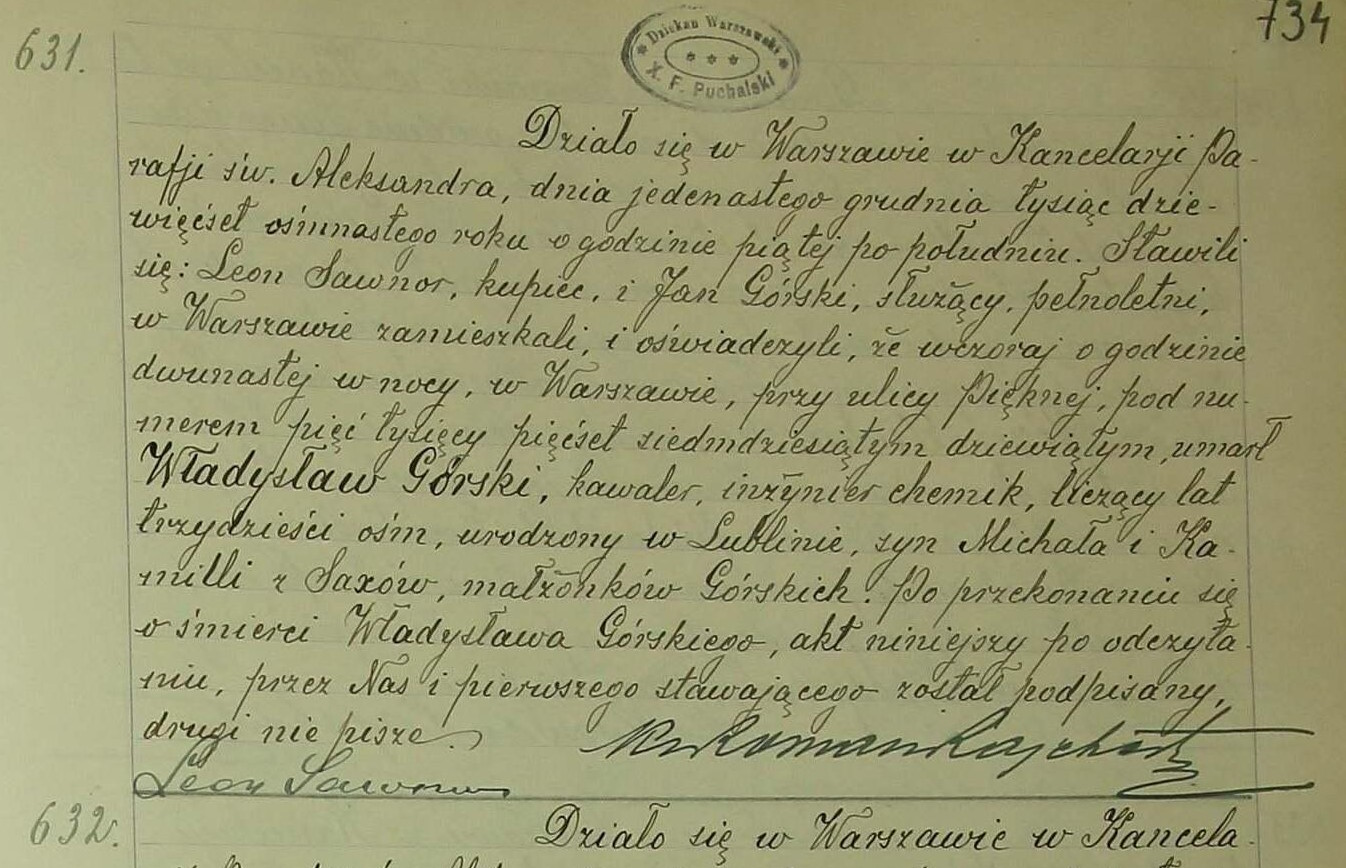 734
631.
Dziekan Warszawski
X. F. Puchalski
Działo się w Warszawie w Kancelarji Pa-
rafji św. Aleksandra, dnia jedenastego grudnia tysiąc dzie-
więćset ośmnastego roku o godzinie piątej po południu. Stawili
się: Leon Sawnor, kupiec, i Jan Górski, służący, pełnoletni,
w Warszawie zamieszkali, i oświadczyli, że wczoraj o godzinie
dwunastej w nocy, w Warszawie, przy ulicy Pięknej, pod nu-
merem pięć tysięcy pięćset siedmdziesiątym dziewiątym, umarł
Władysław Górski, kawaler, inżynier chemik, liczący lat
trzydzieści ośm, urodzony w Lublinie, syn Michała i Ka-
milli z Saxów, małżonków Górskich. Po przekonaniu się
o śmierci Władysława Górskiego, akt niniejszy po odczyta-
niu, przez Nas i pierwszego stawającego został podpisany,
drugi nie pisze.
Leon Sawnor
632.
Działo się w Warszawie w Kancela-